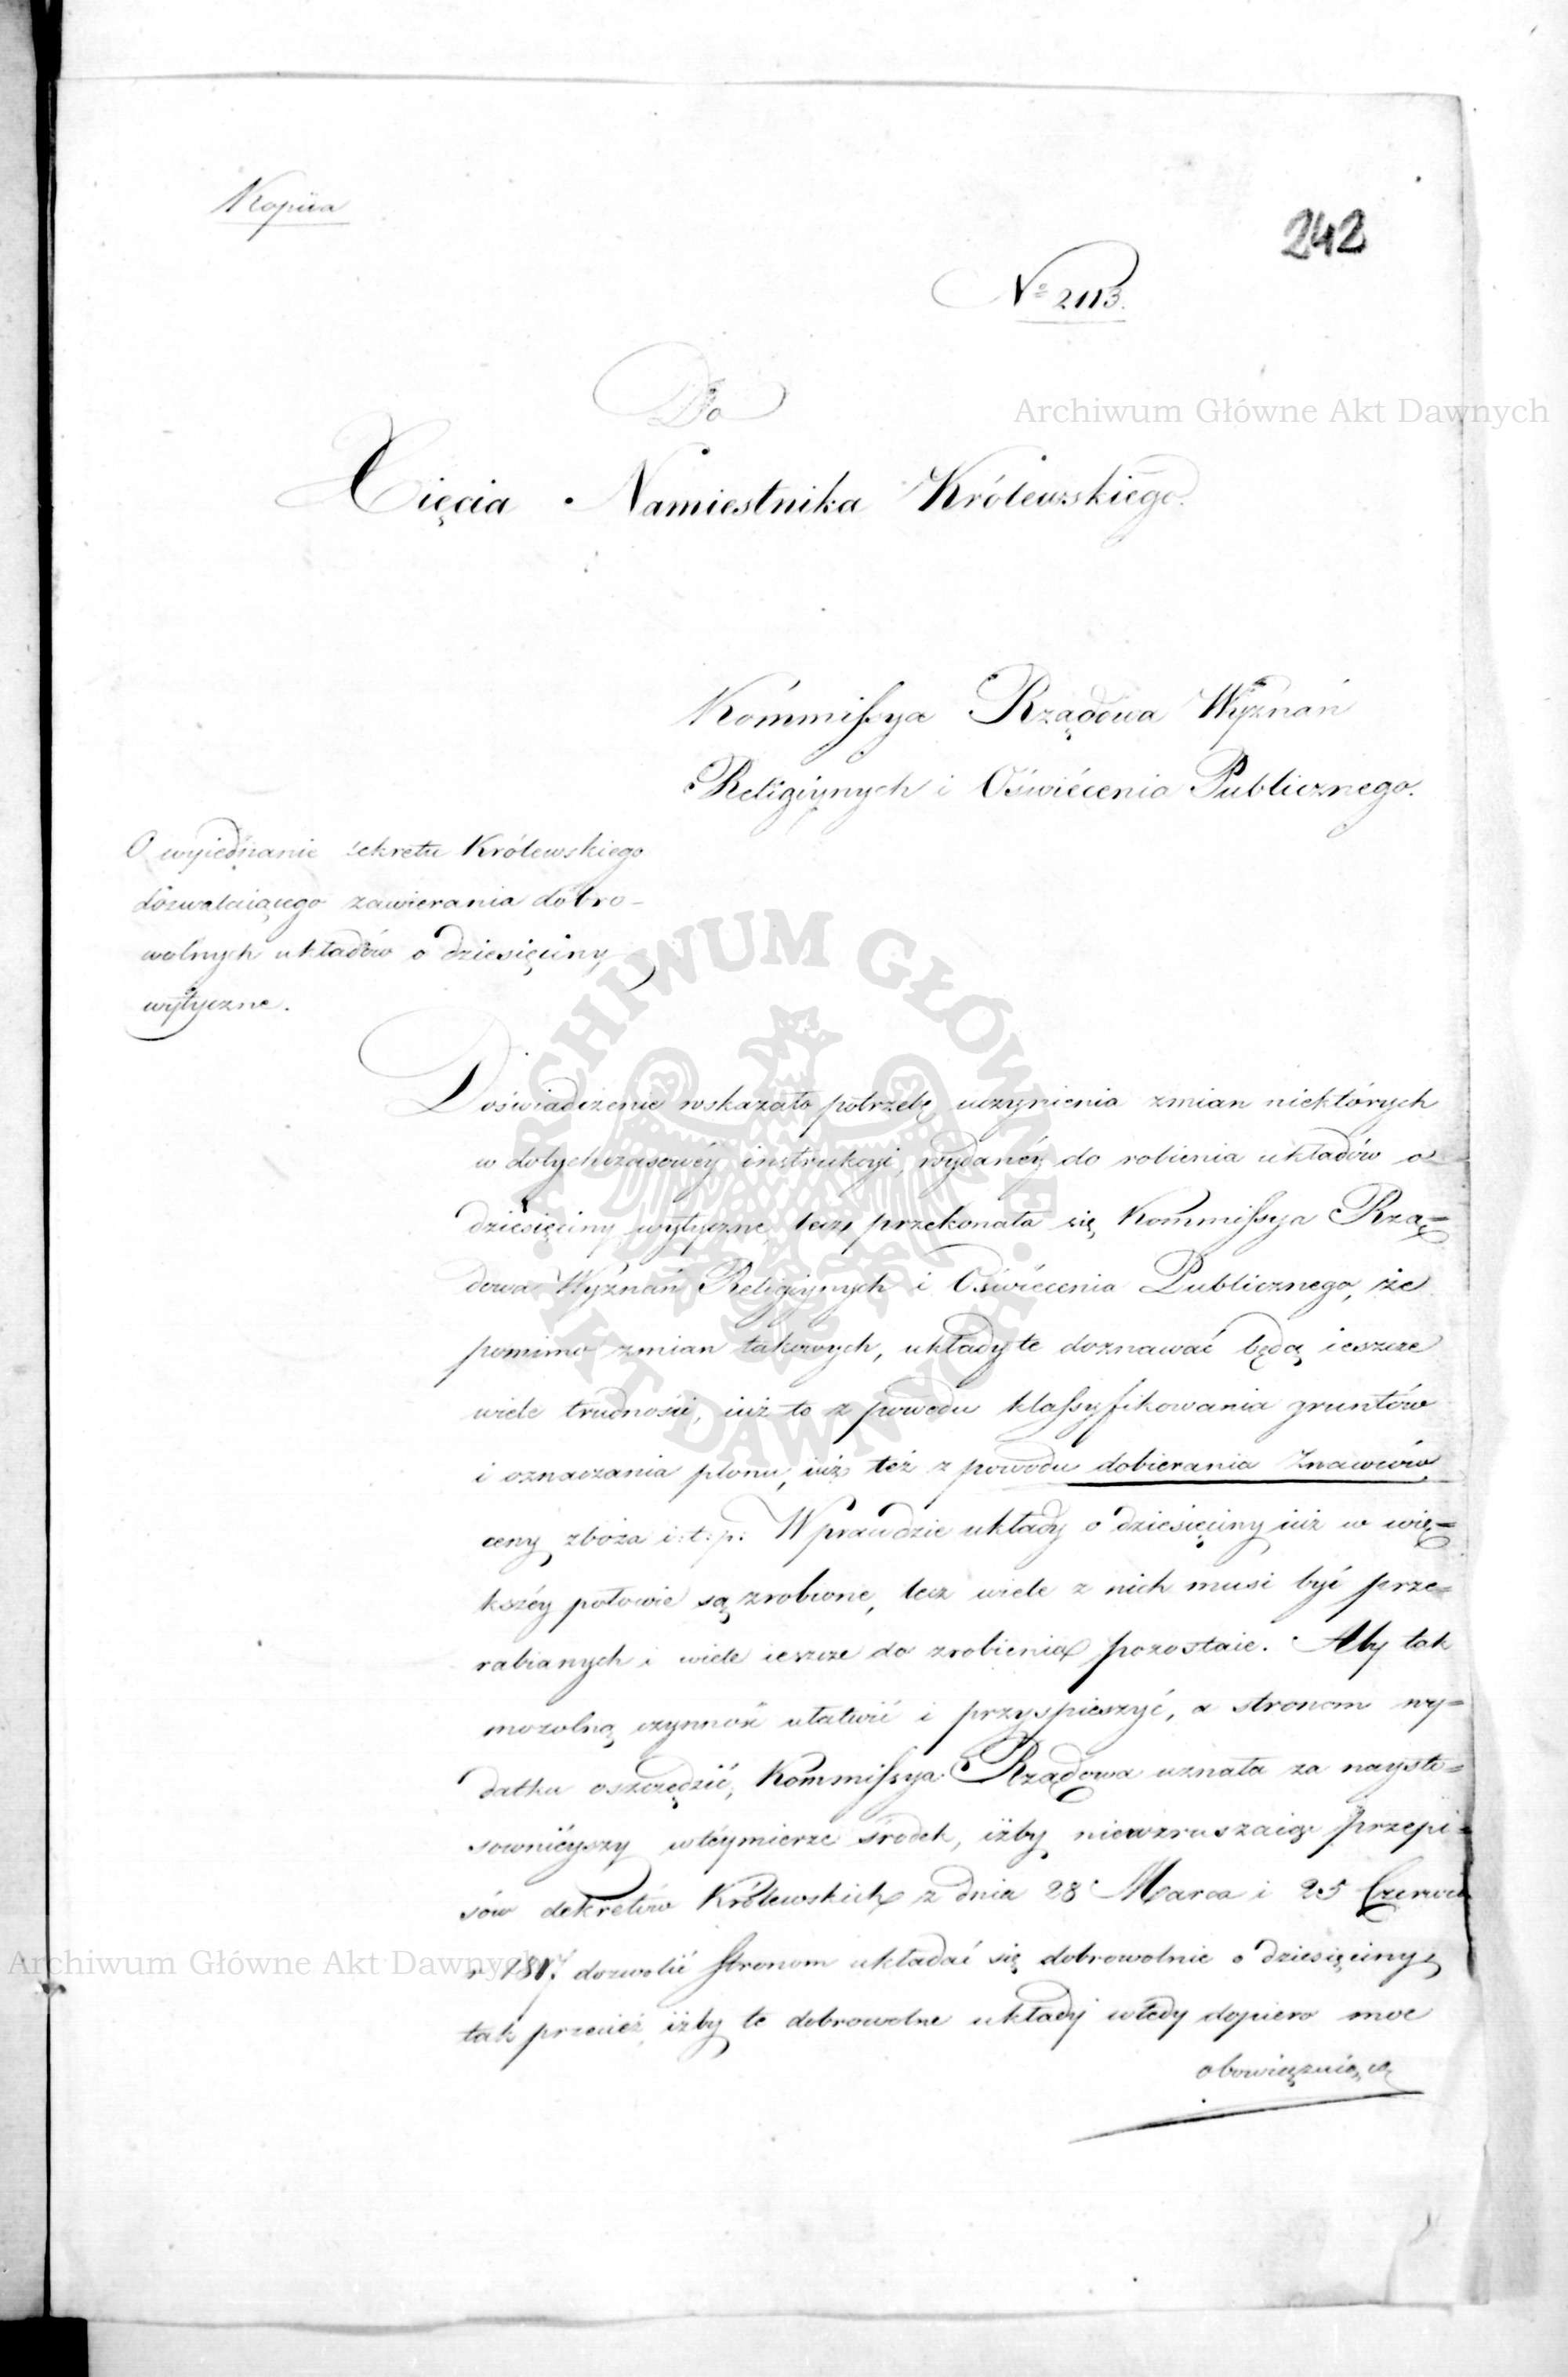 Kopiia
242
№ 2113.
Do
Xięcia Namiestnika Królewskiego.
Kommissya Rządowa Wyznań
Religiynych i Oświécenia Publicznego.
O wyiednanie dekretu Królewskiego
dozwalaiącego zawierania dobro-
wolnych układów o dziesięciny
wytyczne.
Doświadczenie wskazało potrzebę uczynienia zmian niektórych
w dotychczasowéy instrukcyi, wydanéy do robienia układów o
dziesięciny wytyczne, lecz przekonała się Kommissya Rzą=
dowa Wyznań Religiynych i Oświécenia Publicznego, że
pomimo zmian takowych, układy te doznawać będą ieszcze
wiele trudności, iuż to z powodu klassyfikowania gruntów
i oznaczania plonu, iuż też z powodu dobierania Znawców
ceny zboża i:t:p: Wprawdzie układy o dziesięciny iuż w wię=
kszéy połowie są zrobione, lecz wiele z nich musi być prze=
rabianych i wiele ieszcze do zrobienia pozostaie. Aby tak
mozolną czynność ułatwić i przyspieszyć, a stronom wy=
datku oszczędzić, Kommissya Rządowa uznała za naysto=
sownieyszy w téy mierze środek, iżby niewzruszaiąc przepi=
sów dekretów Królewskich z dnia 28 Marca i 25 Czerwca
r 1817. dozwolić Stronom układać się dobrowolnie o dziesięciny,
tak przecież iżby te dobrowolne układy wtedy dopiero moc
obowiązuiącą
Archiwum Główne Akt Dawnych
ARCHIWUM GŁÓWNE AKT DAWNYCH
Archiwum Główne Akt Dawnych